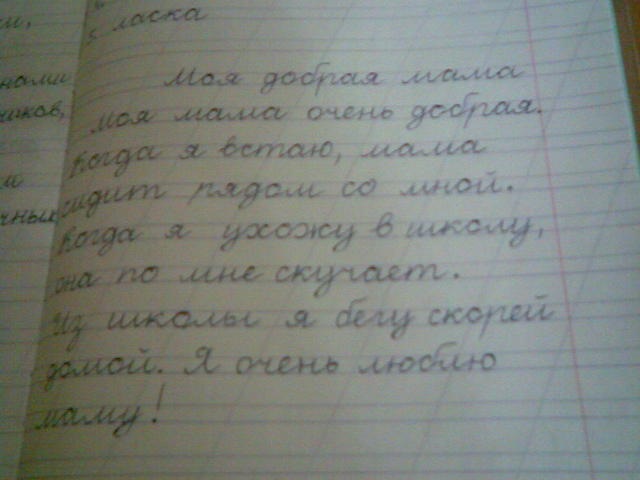 ми,
ласка
нами
чиков,
чных
Моя добрая мама
моя мама очень добрая.
Когда я встаю, мама
сидит рядом со мной.
Когда я ухожу в школу,
она по мне скучает.
Из школы я бегу скорей
домой. Я очень люблю
маму!